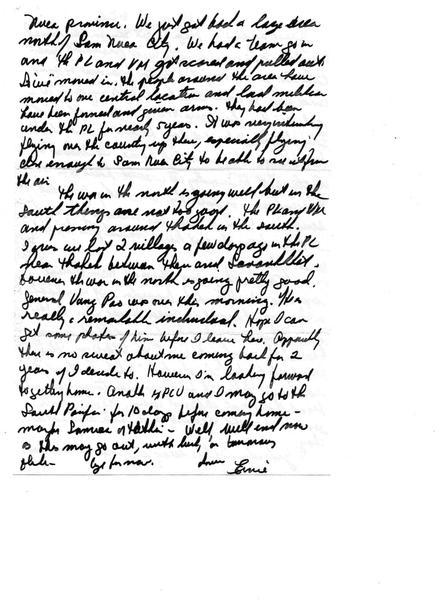 Nuea province. We just got back a large area
north of Sam Nuea City. We had a team go in
and the PL and VM got scared and pulled out
moved in. the people around the area have
moved to one central location and local militia
have been formed and given arms. they had been
under the PL for nearly 5 years. It was very interesting
flying over the country up there, especially flying
close enough to Sam Nuea City to be able to see it from
the air
The war in the north is going well but in the
South things are not too good. the PL and VM
are pressing around Thakek in the south.
I guess we lost 2 villages a few days ago in the PL
area Thakek between there and Savannakhet.
however the war in the north is going pretty good.
General Vang Pao was over this morning. He's
really a remarkable individual. Hope I can
get some photos of him before I leave here. Apparently
there is no sweat about me coming back for 2
years if I decide to. However I'm looking forward
to getting home. Another and I may go to the
South Pacific for 10 days before coming home -
maybe Samoa or Tahiti - Well, will end now
so this may go out, with luck, on tomorrows
bye for now. Love
Ernie